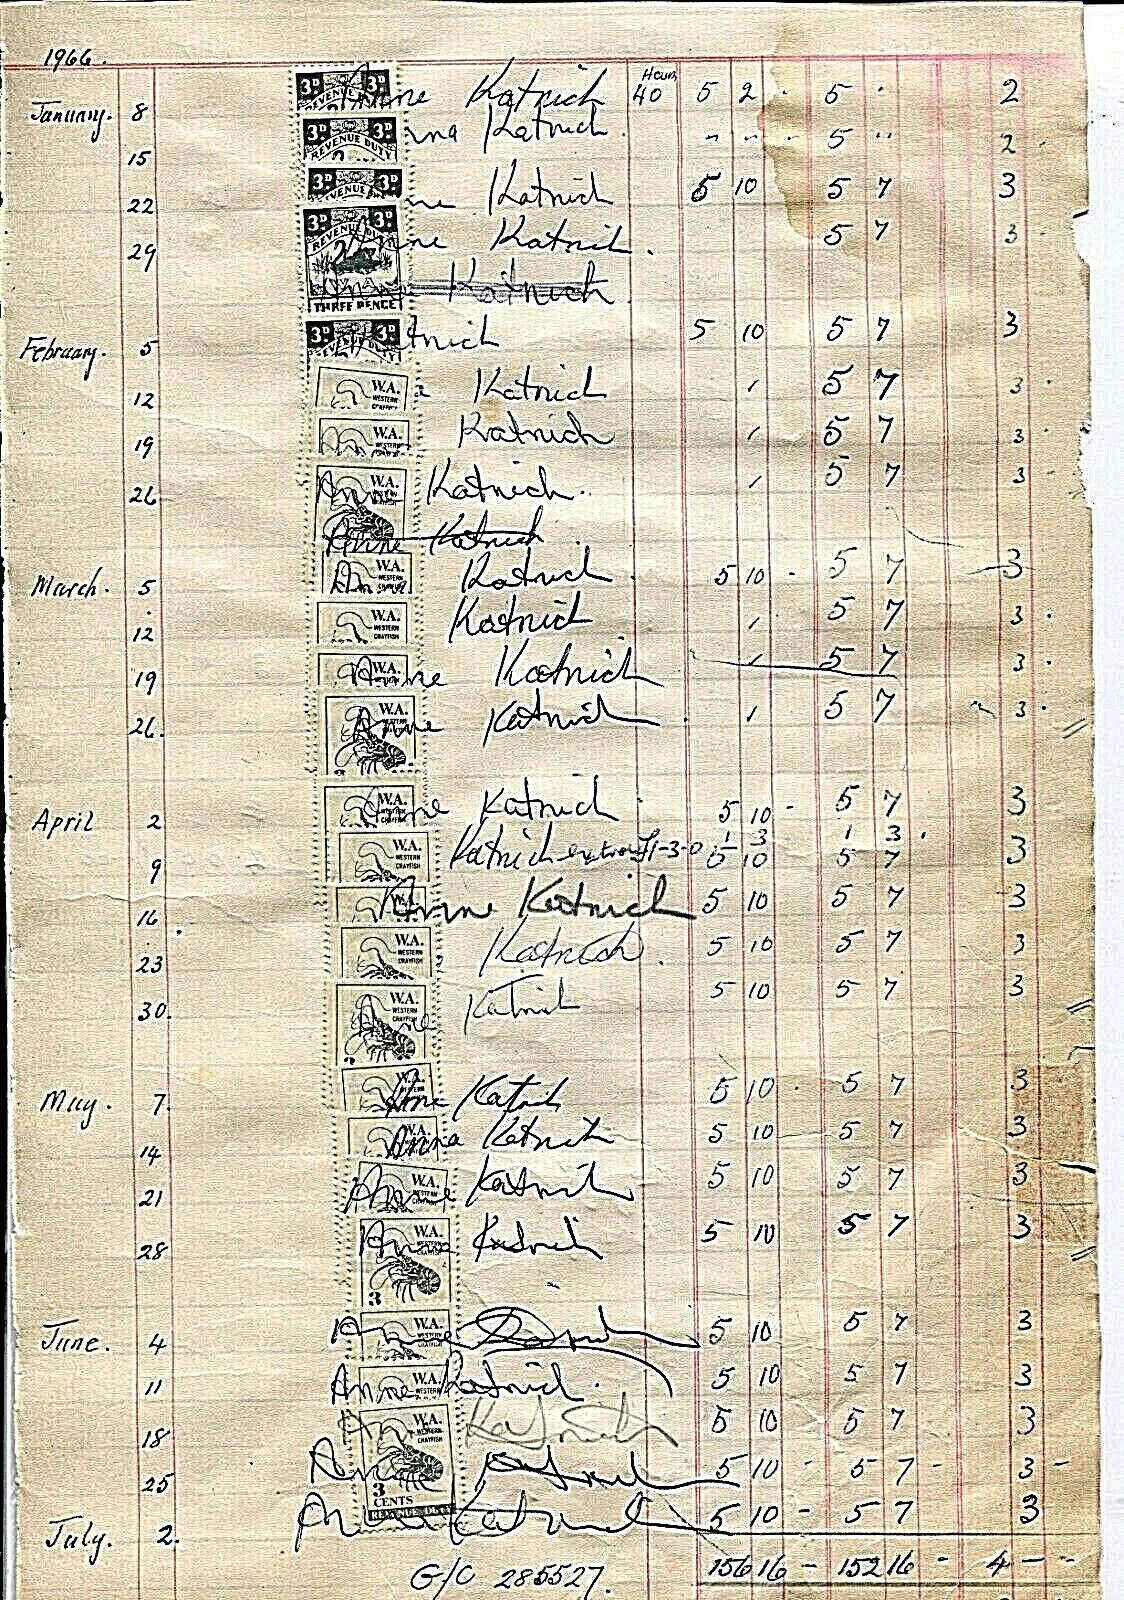 1966.
Hours
January. 8 3D 3D REVENUE DUTY Anne Katnich 40 5 2 · 5 · 2
15 3D 3D REVENUE DUTY nna Katnich. " " · 5 " 2
22 3D 3D ne Katnich 5 10 5 7 3
29 3D 3D REVENUE DUTY Anne Katnich. 5 7 3
THREE PENCE Katnich.
February. 5 3D 3D REVENUE DUTY tnich 5 10 5 7 3
12 W.A. WESTERN CRAYFISH a Katnich 5 7 3
19 W.A. WESTERN Katnich 5 7 3
26 W.A. Anne Katnich. 5 7 3
Anne Katnich
March. 5 W.A. WESTERN Katnich 5 10 - 5 7 3
12 W.A. WESTERN CRAYFISH Katnich 5 7 3
19 W.A. Anne Katnich 5 7 3
26. W.A. Anne Katnich 5 7 3
April 2 W.A. Anne Katnich 5 10 - 5 7 3
1 3 1 3
9 W.A. WESTERN CRAYFISH Katnich £1-3-0 5 10 5 7 3
16 W.A. Anne Katnich 5 10 5 7 3
23 W.A. WESTERN CRAYFISH Katnich. 5 10 5 7 3
30. W.A. WESTERN CRAYFISH Anne Katnich 5 10 5 7 3
May. 7. W.A. Anne Katnich 5 10 · 5 7 3
14 W.A. Anna Katnich 5 10 5 7 3
21 W.A. WESTERN Anne Katnich 5 10 5 7 3
28 W.A. Anne Katnich 5 10 5 7 3
3
June. 4 W.A. Anne Katnich 5 10 5 7 3
11 W.A. WESTERN Anne Katnich. 5 10 5 7 3
18 W.A. WESTERN CRAYFISH Katnich 5 10 5 7 3
25 3 CENTS Anne Katnich 5 10 - 5 7 - 3 -
July. 2. Katnich 5 10 - 5 7 3
G/C 285527. 156 16 - 152 16 - 4 - -